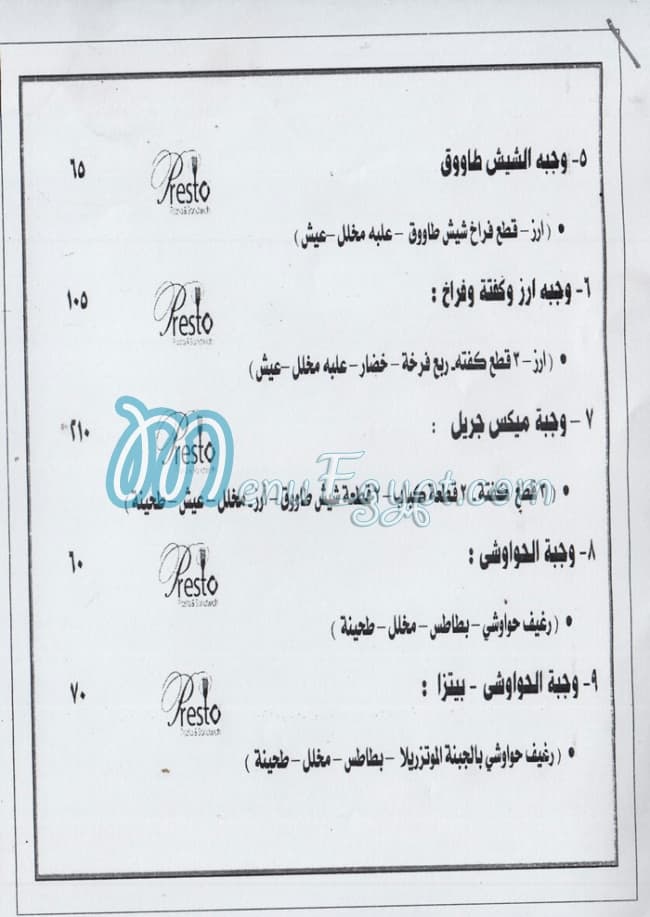 ٥- وجبه الشيش طاووق ٦٥
Presto
Pasta & Sandwich
• ( ارز - قطع فراخ شيش طاووق - علبه مخلل -عيش )
٦- وجبه ارز وكفتة وفراخ : ١٠٥
Presto
Pasta & Sandwich
• ( ارز - ٢ قطع كفته- ربع فرخة - خضار - علبه مخلل -عيش )
٧ - وجبة ميكس جريل : ٢١٠
Presto
MenuEgypt.com
• ( ٣ قطع كفتة - ٢ قطعة كباب - ٢ قطعة شيش طاووق - ارز- مخلل - عيش - طحينة )
٨- وجبة الحواوشى : ٦٠
Presto
Pasta & Sandwich
• ( رغيف حواوشي - بطاطس - مخلل - طحينة )
٩- وجبة الحواوشى - بيتزا : ٧٠
Presto
Pasta & Sandwich
• ( رغيف حواوشي بالجبنة الموتزريلا - بطاطس - مخلل - طحينة )